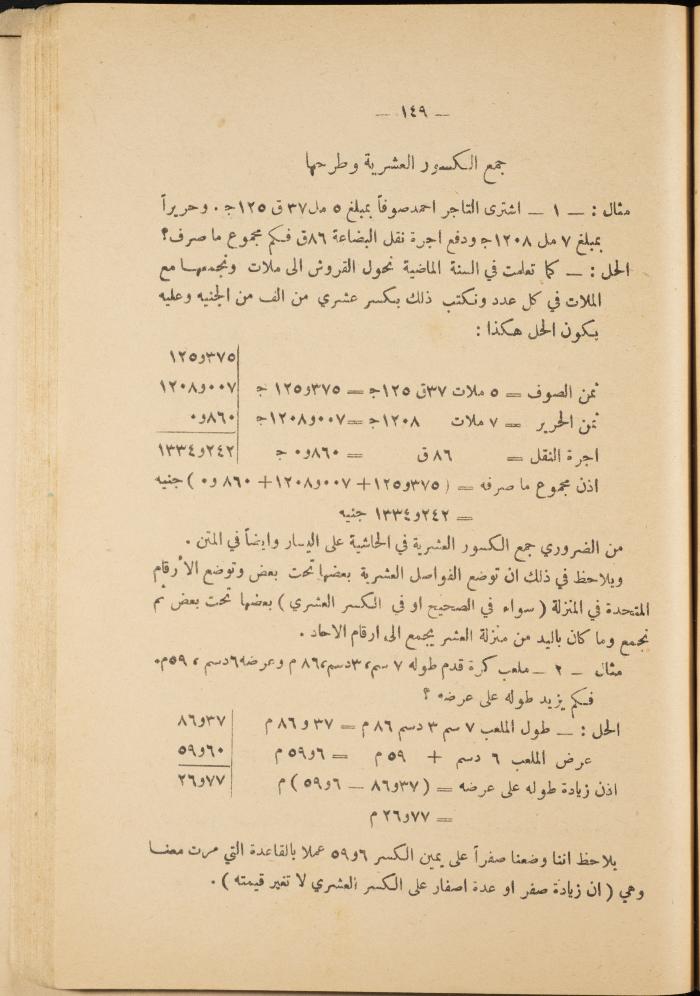 — ١٤٩ —
جمع الكسور العشرية وطرحها
مثال : — ١ — اشترى التاجر احمد صوفاً بمبلغ ٥ مل ٣٧ ق ١٢٥ج . وحريراً
بمبلغ ٧ مل ١٢٠٨ج ودفع اجرة نقل البضاعة ٨٦ق فكم مجموع ما صرف؟
الحل : — كما تعلمت في السنة الماضية نحول القروش الى ملات ونجمعها مع
الملات في كل عدد ونكتب ذلك بكسر عشري من الف من الجنيه وعليه
يكون الحل هكذا :
١٢٥و٣٧٥
ثمن الصوف = ٥ ملات ٣٧ق ١٢٥ج = ١٢٥و٣٧٥ ج ١٢٠٨و٠٠٧
ثمن الحرير = ٧ ملات ١٢٠٨ج = ١٢٠٨و٠٠٧ج ٠و٨٦٠
اجرة النقل = ٨٦ ق = ٠و٨٦٠ ج ١٣٣٤و٢٤٢
اذن مجموع ما صرفه = ( ١٢٥و٣٧٥ + ١٢٠٨و٠٠٧ + ٠و٨٦٠ ) جنيه
= ١٣٣٤و٢٤٢ جنيه
من الضروري جمع الكسور العشرية في الحاشية على اليسار وايضاً في المتن .
ويلاحظ في ذلك ان توضع الفواصل العشرية بعضها تحت بعض وتوضع الأرقام
المتحدة في المنزلة ( سواء في الصحيح او في الكسر العشري ) بعضها تحت بعض ثم
نجمع وما كان باليد من منزلة العشر يجمع الى ارقام الاحاد .
مثال — ٢ — ملعب كرة قدم طوله ٧ سم، ٣دسم، ٨٦ م وعرضه ٦دسم ، ٥٩م.
فكم يزيد طوله على عرضه ؟
الحل : — طول الملعب ٧ سم ٣ دسم ٨٦ م = ٨٦و٣٧ م ٨٦و٣٧
عرض الملعب ٦ دسم + ٥٩ م = ٥٩و٦ م ٥٩و٦٠
اذن زيادة طوله على عرضه = ( ٨٦و٣٧ — ٥٩و٦ ) م ٢٦و٧٧
= ٢٦و٧٧ م
يلاحظ اننا وضعنا صفراً على يمين الكسر ٥٩و٦ عملا بالقاعدة التي مرت معنا
وهي ( ان زيادة صفر او عدة اصفار على الكسر العشري لا تغير قيمته ) .